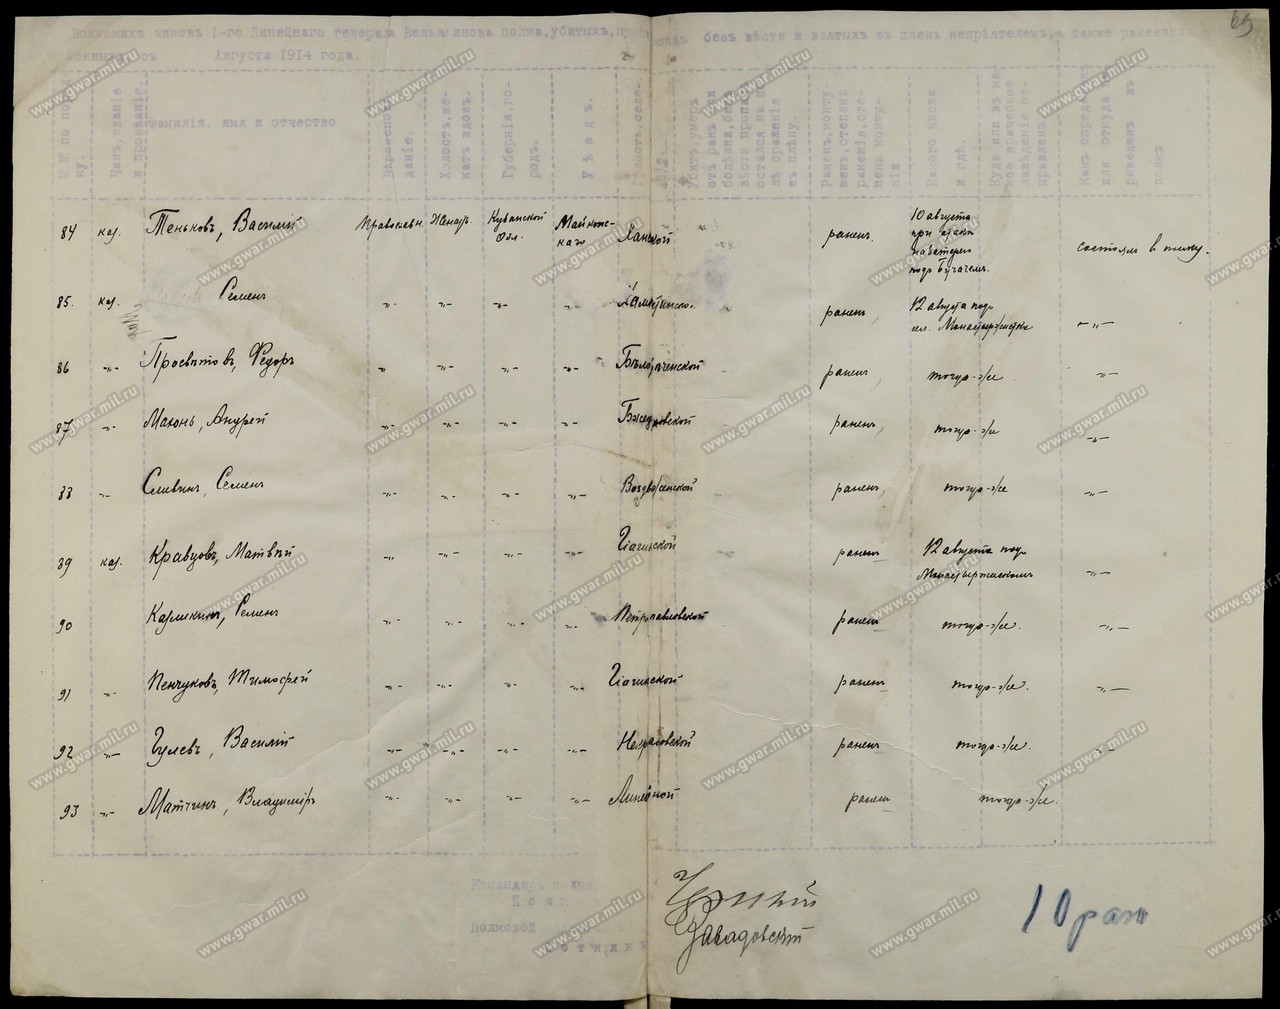 65
Воинскихъ чиновъ I-го Линейнаго генерала Вельяминова полка, убитыхъ, безъ вѣсти и взятыхъ въ плѣнъ непріятелемъ, а также раненыхъ
Августа 1914 года.
№№ по по
ку.
Чинъ, званіе
и прозваніе.
Фамилія, имя и отчество
Вѣроиспо
даніе.
Холостъ, же-
натъ вдов.
Губернія, го-
родъ.
Уѣздъ.
Убитъ, умеръ
отъ ранъ или
болѣзни, безъ
вѣсти пропалъ
остался на по
лѣ сраженія
въ плѣну.
Раненъ, конту
женъ, степень
раненія, сте-
пень конту-
зіи
Какого числа
и гдѣ.
Куда или въ ка
кое врачебное
заведеніе от-
правленъ
Какъ опредѣ
или откуда пе
реведенъ въ
полкъ
84 каз. Теньковъ, Василій Православн. Женат. Кубанской Обл. Майкопс-каго Ханской раненъ. 10 августа
при атакѣ
на батарею
подъ Бучачемъ.
состоялъ в полку.
85. каз. Семенъ -„- -„- -„- раненъ, 12 августа под
86 -„- Просвѣтовъ, Федоръ -„- -„- -„- -„- Бѣлорѣченской раненъ, тогда-же -„-
87. -„- Махонь, Андрей -„- -„- -„- -„- Бжедуховской раненъ, тогда-же -„-
88 -„- Сливинъ, Семенъ -„- -„- -„- -„- Воздвиженской раненъ, тогда-же -„-
89 каз. Кравцовъ, Матвѣй -„- -„- -„- -„- Гіагинской раненъ 12 августа под
Монастыржискомъ -„-
90 -„- Калинкинъ, Семенъ -„- -„- -„- -„- Петропавловской раненъ тогда-же. -„-
91 -„- Пенчуковъ, Тимофей -„- -„- -„- -„- Гіагинской раненъ тогда-же. -„-
92 -„- Гулевъ, Василій -„- -„- -„- -„- Некрасовской раненъ тогда-же. -„-
93 -„- Матчинъ, Владиміръ -„- -„- -„- -„- Линейной раненъ тогда-же.
Командиръ полка
Полковой
Сотникъ
Завадовскій
10 ран
www.gwar.mil.ru